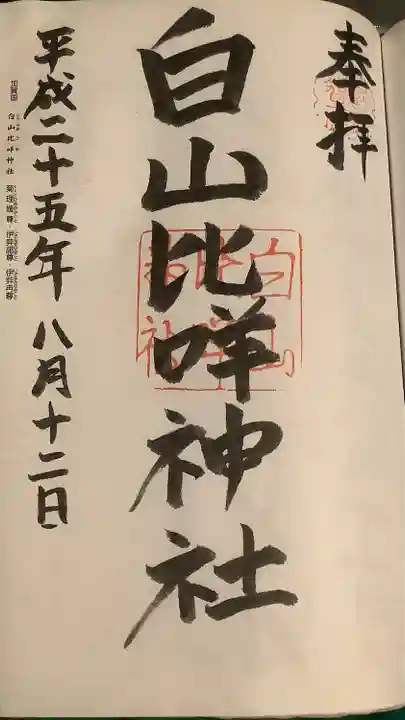 奉拝
白山比咩神社
白山比咩神社
平成二十五年 八月十二日
加賀国 白山比咩神社 菊理媛尊・伊弉諾尊・伊弉冉尊